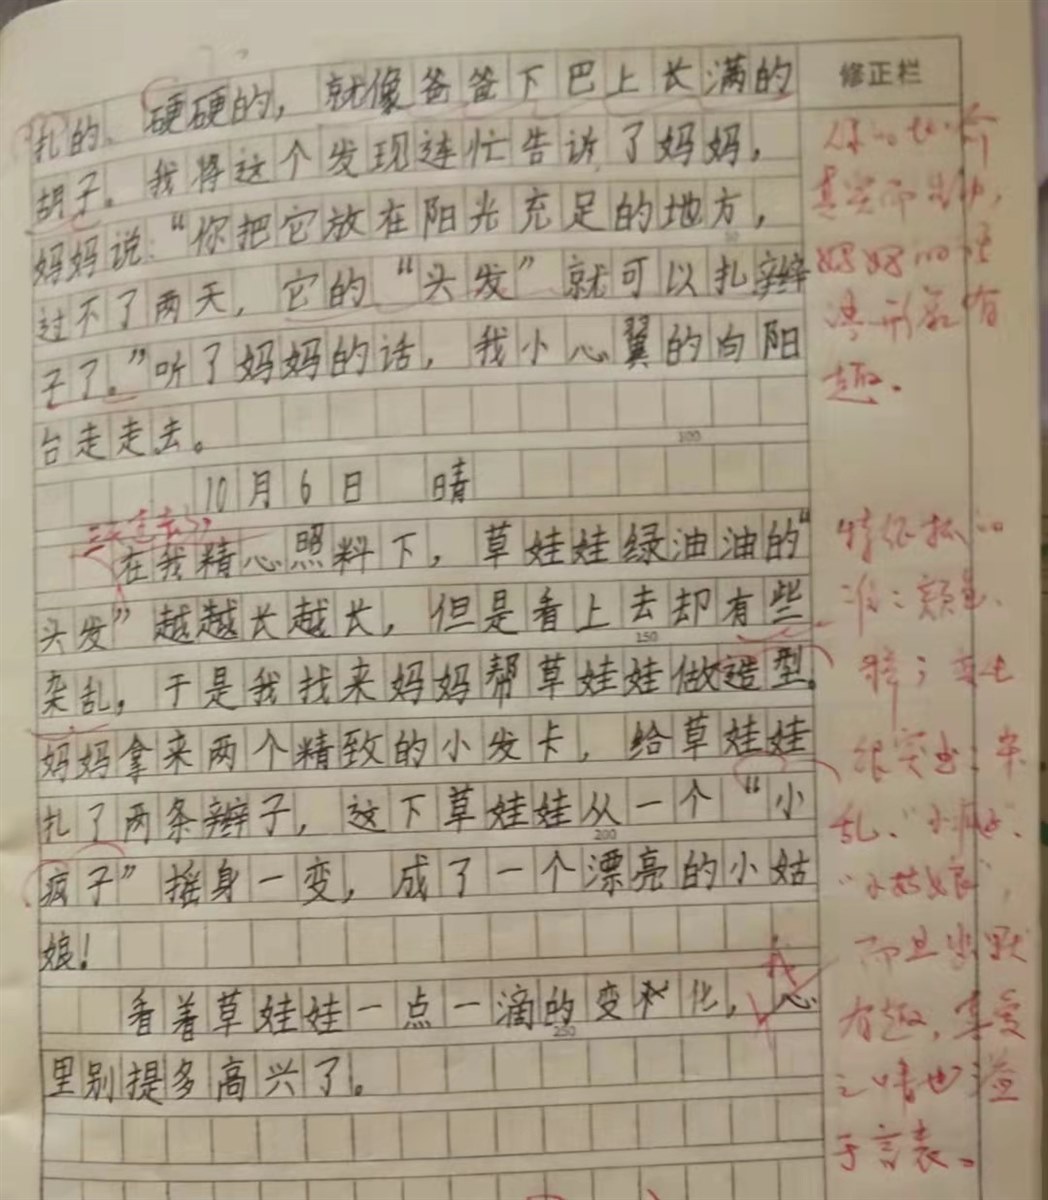 扎的、硬硬的，就像爸爸下巴上长满的
修正栏
胡子。我将这个发现连忙告诉了妈妈，
妈妈说：“你把它放在阳光充足的地方，
过不了两天，它的“头发”就可以扎辫
子了。”听了妈妈的话，我小心翼的向阳
台走走去。
100
10月6日 晴
在我精心照料下，草娃娃绿油油的“
头发”越越长越长，但是看上去却有些
150
杂乱，于是我找来妈妈帮草娃娃做造型。
妈妈拿来两个精致的小发卡，给草娃娃
扎了两条辫子，这下草娃娃从一个“小
200
疯子”摇身一变，成了一个漂亮的小姑
娘！
看着草娃娃一点一滴的变化，心
250
里别提多高兴了。
我
真实而生动，
妈妈的话
有
趣。
特征抓的
准：颜色、
很突出：杂
乱、“小疯子”、
“小姑娘”，
而且幽默
有趣，喜爱
之情也溢
于言表。